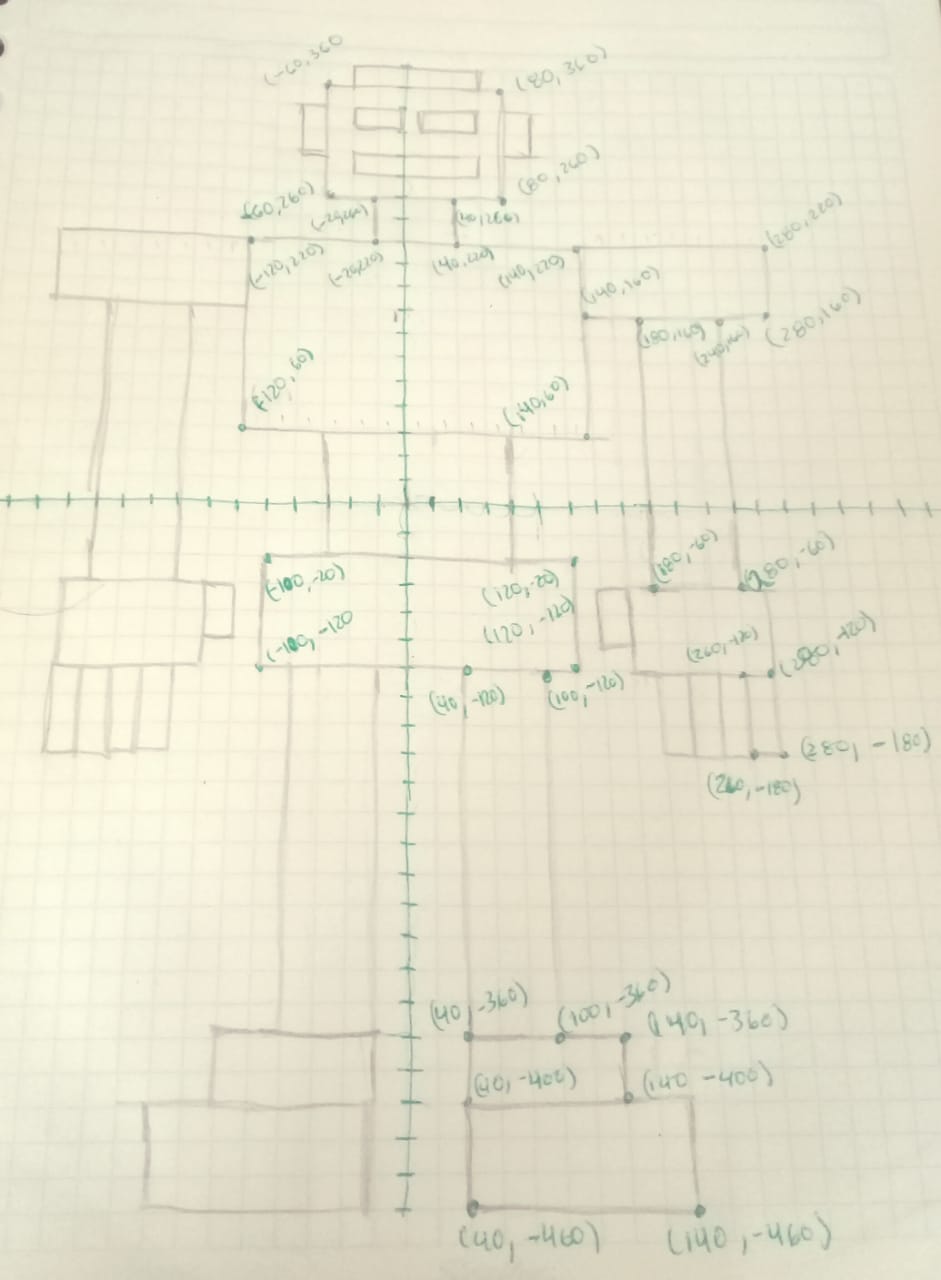 (-60,360
(80,360)
(80,260)
-60,260)
(-20,260)
(40,260)
(280,220)
(-120,220)
(-20,220)
(40,220)
(140,220)
(140,160)
(180,160)
(240,160)
(280,160)
(-120,60)
(140,60)
(180,-60)
280,-60)
(-100,-20)
(120,-20)
(120,-120)
(-100,-120
(260,-120)
(280,-120)
(40,-120)
(100,-120)
(280,-180)
(260,-180)
(40,-360)
(100,-360)
(140,-360)
(40,-400)
(140 -400)
(40,-460)
(140,-460)